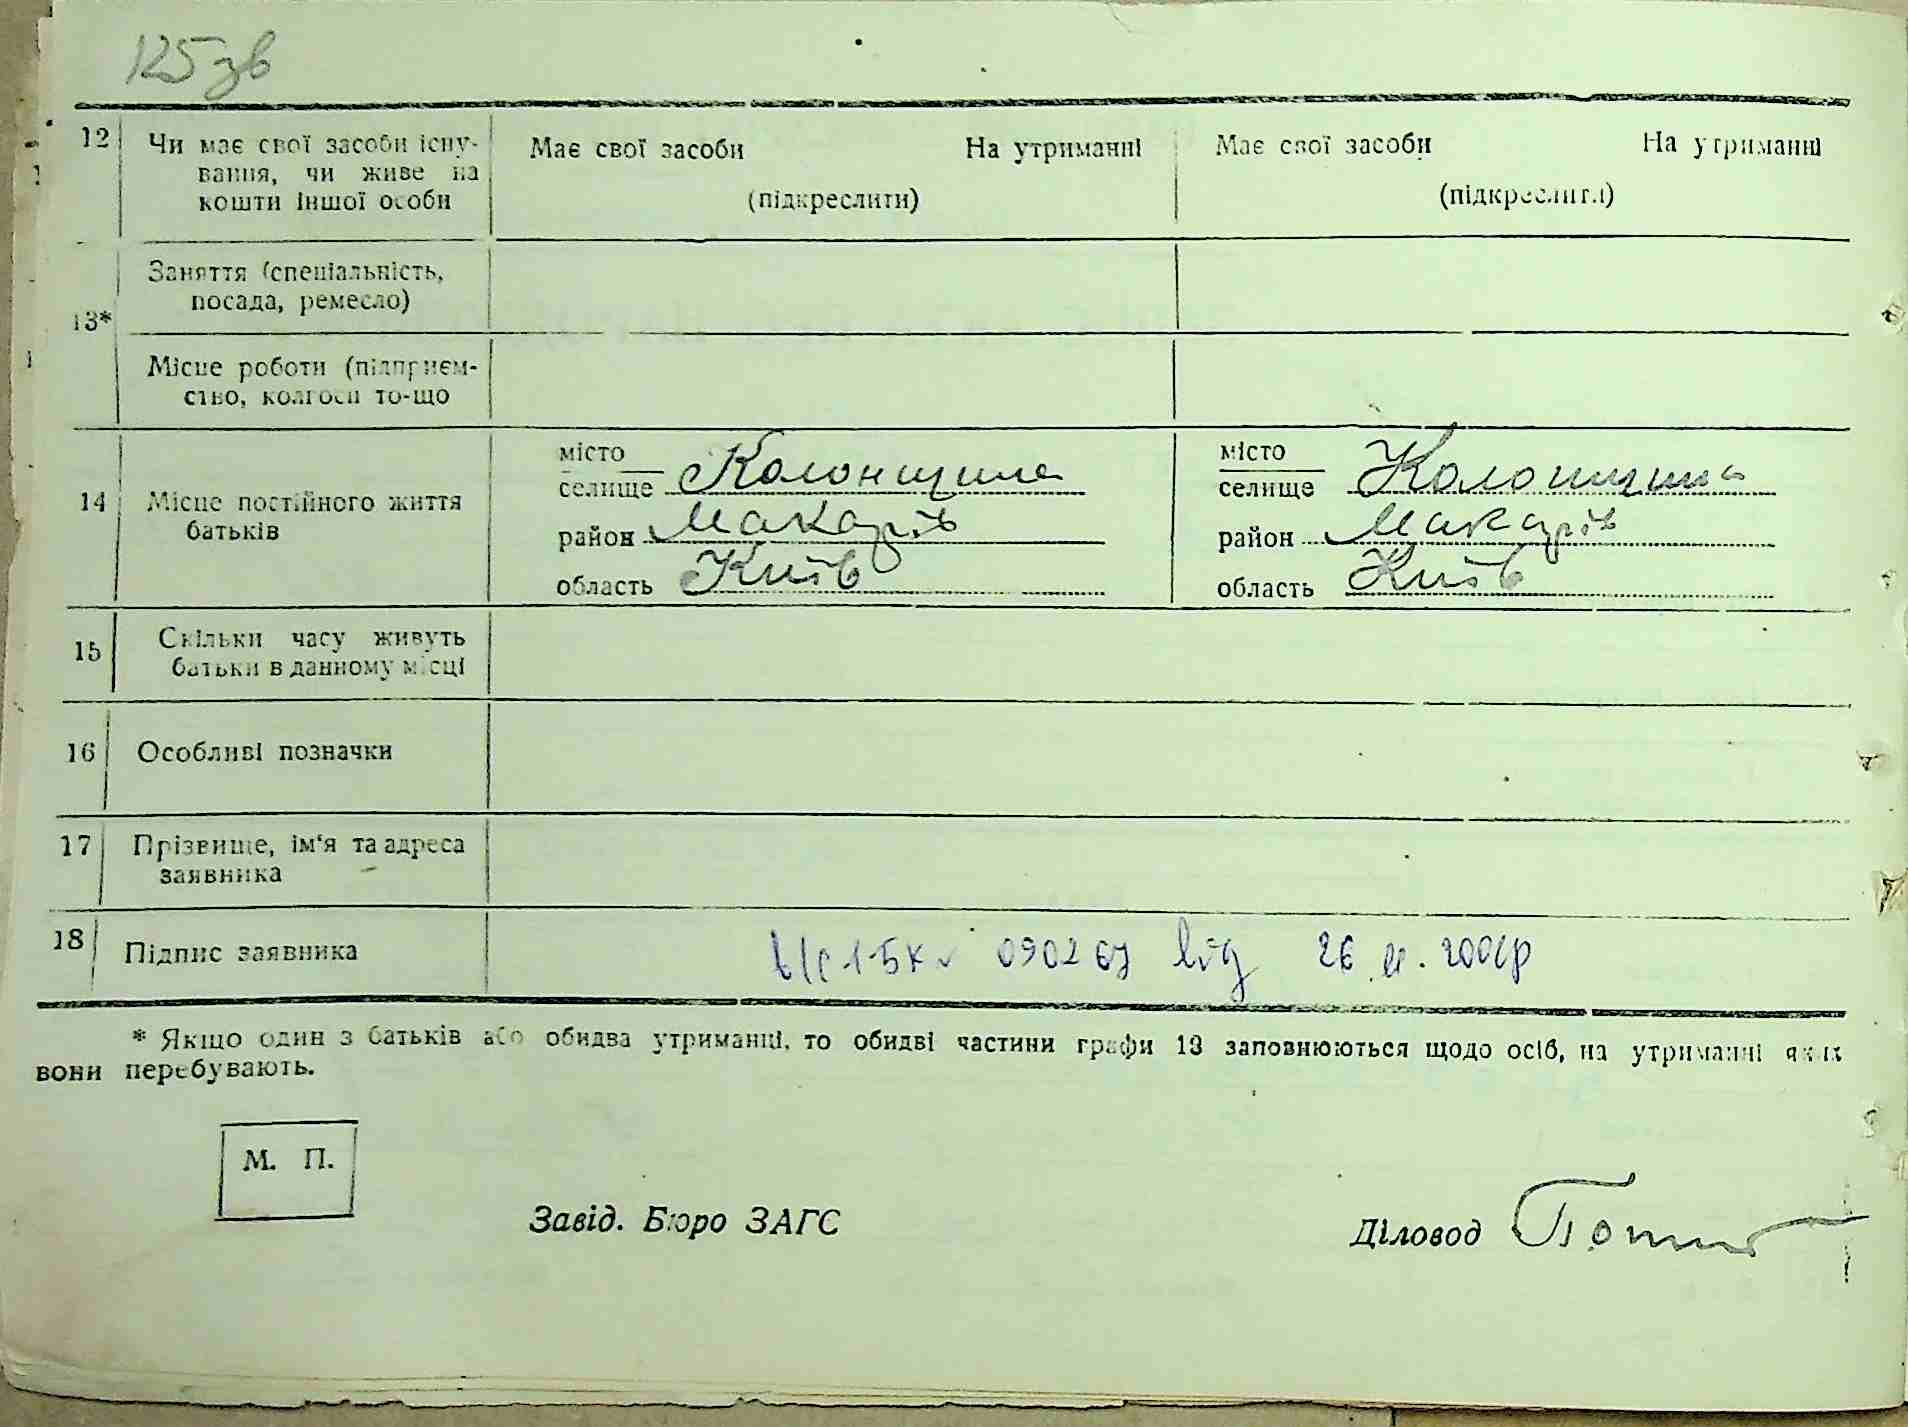 125 зв
12 Чи має свої засоби існу- Має свої засоби На утриманні Має свої засоби На утриманні
вання, чи живе на
кошти іншої особи (підкреслити) (підкреслити)
Заняття (спеціальність,
посада, ремесло)
13*
Місце роботи (підприєм-
ство, колгосп то-що
місто місто
селище Колонщина селище Колонщина
14 Місце постійного життя
батьків район Макарів район Макарів
область Київ область Київ
15 Скільки часу живуть
батьки в данному місці
16 Особливі позначки
17 Прізвище, ім'я та адреса
заявника
18 Підпис заявника 090267 від 26.11.
* Якщо один з батьків або обидва утриманці, то обидві частини графи 13 заповнюються щодо осіб, на утриманні яких
вони перебувають.
М. П.
Завід. Бюро ЗАГС Діловод